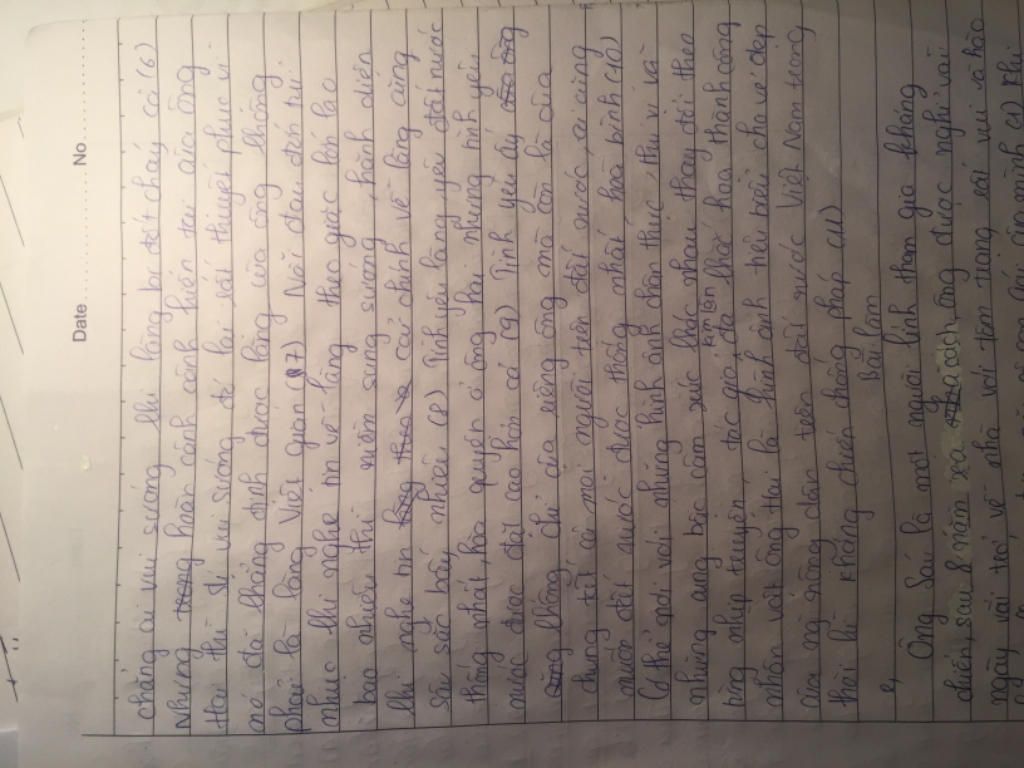 Date.................. No...........
chẳng ai vui sướng khi làng bị đốt cháy cả (6)
Nhưng trong hoàn cảnh cảnh hiện tại của ông
Hai thì sự vui sướng đó lại rất thuyết phục vì
nó đã thắng định được làng của ông không
phải là làng Việt gian (7) Nỗi đau đớn tủi
nhục khi nghe tin về làng theo giặc lớn lao
bao nhiêu thì niềm sung sướng, hãnh diện
khi nghe tin cải chính về làng càng
sâu sắc bấy nhiêu (8) Tình yêu làng, yêu đất nước
thống nhất, hòa quyện ở ông Hai nhưng tình yêu
nước được đặt cao hơn cả (9) Tình yêu ấy
không chỉ của riêng ông mà còn là của
chung tất cả mọi người trên đất nước, ai cũng
muốn đất nước được thống nhất hoà bình (10)
Có thể nói với những hình ảnh chân thực, thú vị và
những cung bậc cảm xúc khác nhau thay đổi theo
từng nhịp truyện, tác giả đã khắc hoạ thành công
Kim Lân
nhân vật ông Hai là hình ảnh tiêu biểu cho vẻ đẹp
của người nông dân trên đất nước Việt Nam trong
thời kì kháng chiến chống pháp (11)
Bài làm
Ông Sáu là một người lính tham gia kháng
chiến, sau 8 năm xa gia đình, ông được nghỉ vài
ngày rồi trở về nhà với tâm trạng rất vui và háo
con gái của mình (1) Khi